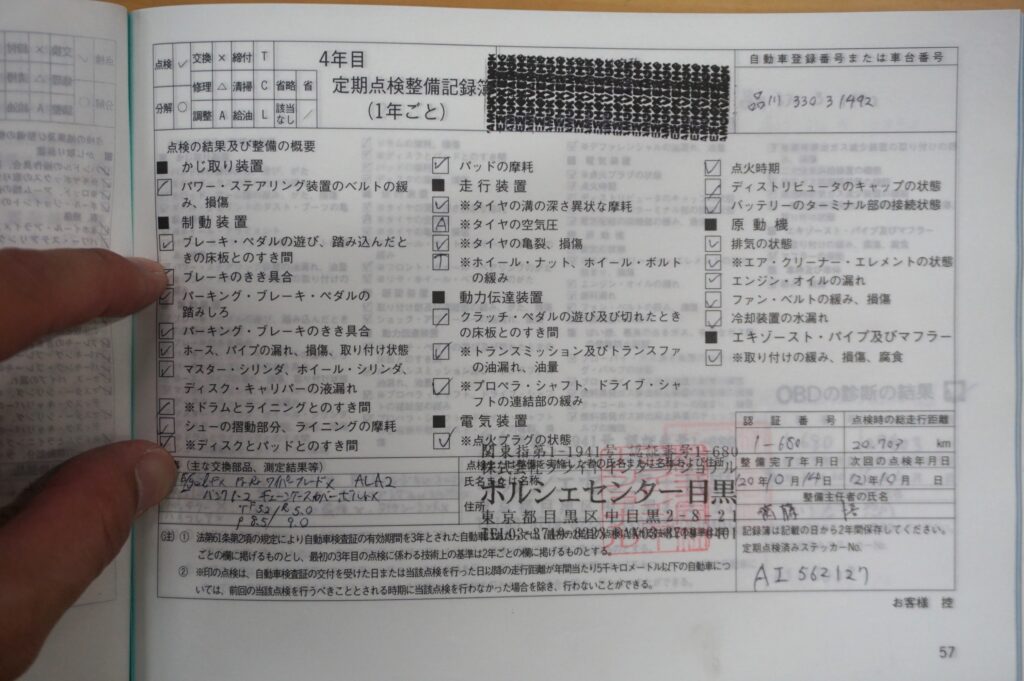 点検 ✓ 交換 × 締付 T
修理 △ 清掃 C 省略 省
分解 ○ 調整 A 給油 L 該当なし ／
4年目
定期点検整備記録簿
(1年ごと)
自動車登録番号または車台番号
品川 330 ろ 1492
点検の結果及び整備の概要
■ かじ取り装置
パワー・ステアリング装置のベルトの緩
み、損傷
■ 制動装置
ブレーキ・ペダルの遊び、踏み込んだと
きの床板とのすき間
ブレーキのきき具合
パーキング・ブレーキ・ペダルの
踏みしろ
パーキング・ブレーキのきき具合
ホース、パイプの漏れ、損傷、取り付け状態
マスター・シリンダ、ホイール・シリンダ、
ディスク・キャリパーの液漏れ
※ドラムとライニングとのすき間
シューの摺動部分、ライニングの摩耗
※ディスクとパッドとのすき間
パッドの摩耗
■ 走行装置
※タイヤの溝の深さ異状な摩耗
A ※タイヤの空気圧
※タイヤの亀裂、損傷
T ※ホイール・ナット、ホイール・ボルト
の緩み
■ 動力伝達装置
クラッチ・ペダルの遊び及び切れたとき
の床板とのすき間
※トランスミッション及びトランスファ
の油漏れ、油量
※プロペラ・シャフト、ドライブ・シャ
フトの連結部の緩み
■ 電気装置
※点火プラグの状態
点火時期
ディストリビュータのキャップの状態
バッテリーのターミナル部の接続状態
■ 原動機
排気の状態
※エア・クリーナー・エレメントの状態
エンジン・オイルの漏れ
ファン・ベルトの緩み、損傷
冷却装置の水漏れ
■ エキゾースト・パイプ及びマフラー
※取り付けの緩み、損傷、腐食
(主な交換部品、測定結果等)
バンク1-2 チェーンケースカバーボルト×
8.5/9.0
氏名または名称
住所
関東指第1-1941号 認証番号1-680
ポルシェセンター目黒
東京都目黒区中目黒2-8-21
認証番号
1-680
点検時の総走行距離
20.707 km
整備完了年月日
20年10月14日
次回の点検年月日
年10月 日
整備主任者の氏名
記録簿は記載の日から2年間保存してください。
定期点検済みステッカーNo.
AI 562127
(注) ① 法第61条第2項の規定により自動車検査証の有効期間を3年とされた自動車
ごとの欄に掲げるものとし、最初の3年目の点検に係わる技術上の基準は2年ごとの欄に掲げるものとする。
② ※印の点検は、自動車検査証の交付を受けた日または当該点検を行った日以降の走行距離が年間当たり5千キロメートル以下の自動車につ
いては、前回の当該点検を行うべきこととされる時期に当該点検を行わなかった場合を除き、行わないことができる。
お客様 控
57